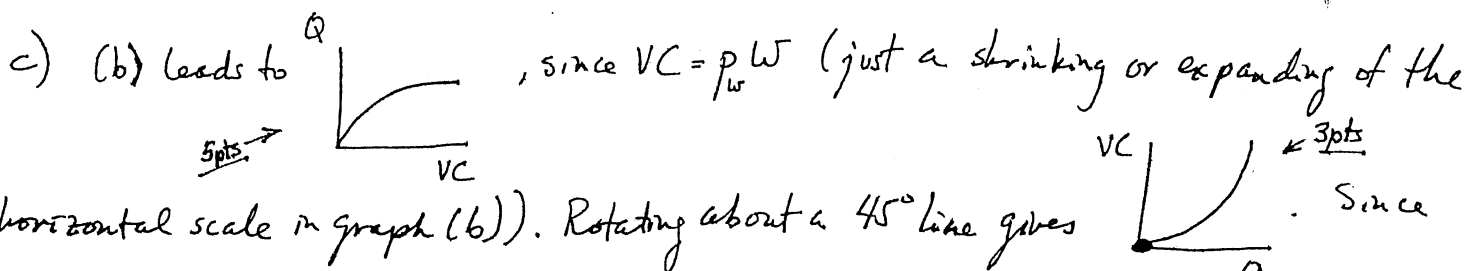 c) (b) leads to Q VC , since VC = p_w W (just a shrinking or expanding of the
5pts. VC 3pts
horizontal scale in graph (b)). Rotating about a 45° line gives Q . Since